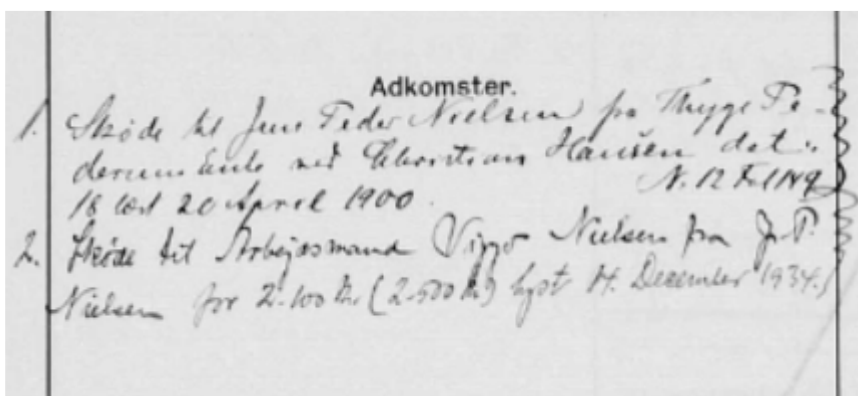 Adkomster.
1. Skøde til Jens Peder Nielsen fra Thyge Pe-
dersens Enke ved Christian Hansen dat.
18 læst 20 April 1900.
2. Skøde til Arbejdsmand Viggo Nielsen fra J. P.
Nielsen for 2.100 Kr (2.500 Kr) lyst 14. December 1934.